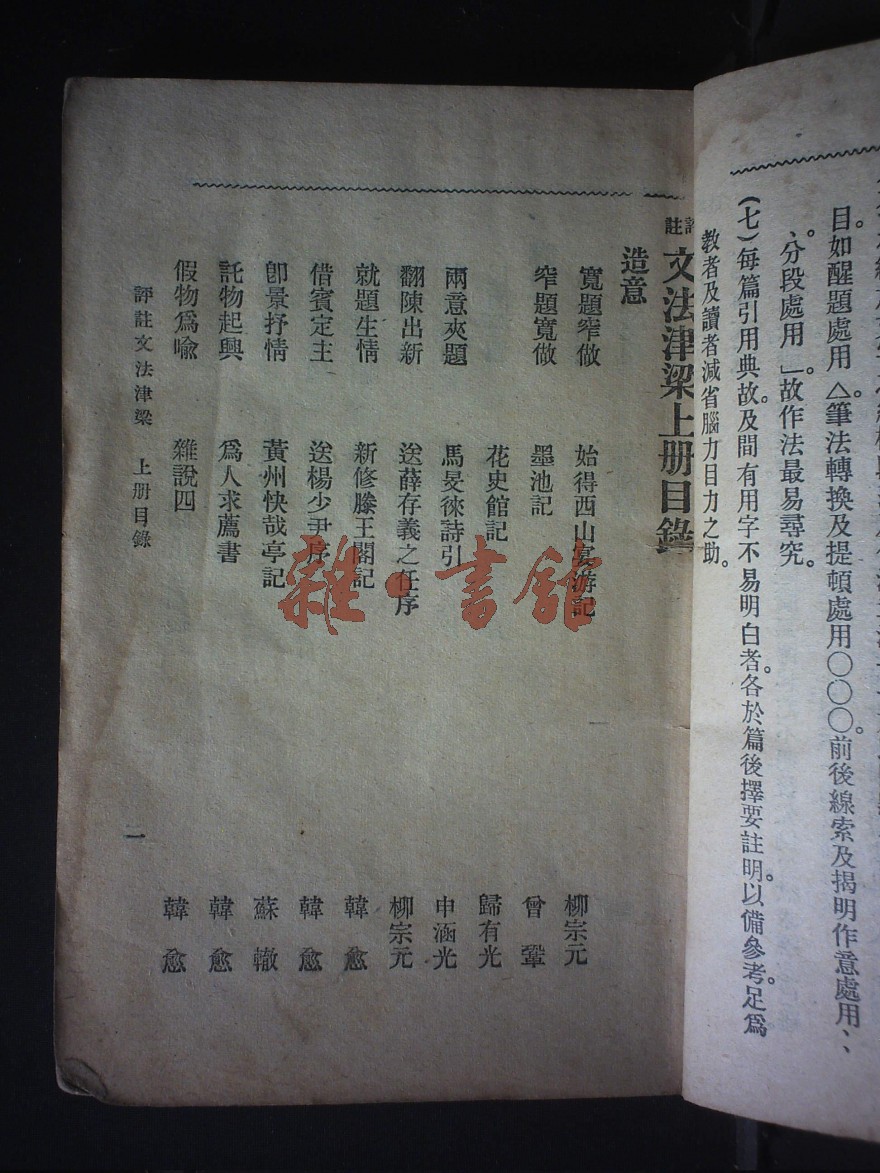 目。如醒題處用△。筆法轉換及提頓處用〇〇〇。前後線索及揭明作意處用、、
、。分段處用」。故作法最易尋究。
(七)每篇引用典故。及間有用字不易明白者。各於篇後擇要註明。以備參考。足爲
教者及讀者減省腦力目力之助。
註文法津梁上册目錄
造意
寬題窄做 始得西山宴游記 柳宗元
窄題寬做 墨池記 曾鞏
花史館記 歸有光
兩意夾題 馬旻徠詩引 申涵光
翻陳出新 送薛存義之任序 柳宗元
就題生情 新修滕王閣記 韓愈
借賓定主 送楊少尹序 韓愈
卽景抒情 黃州快哉亭記 蘇轍
託物起興 爲人求薦書 韓愈
假物爲喩 雜說四 韓愈
評註文法津梁 上册目錄
一
雜·書館